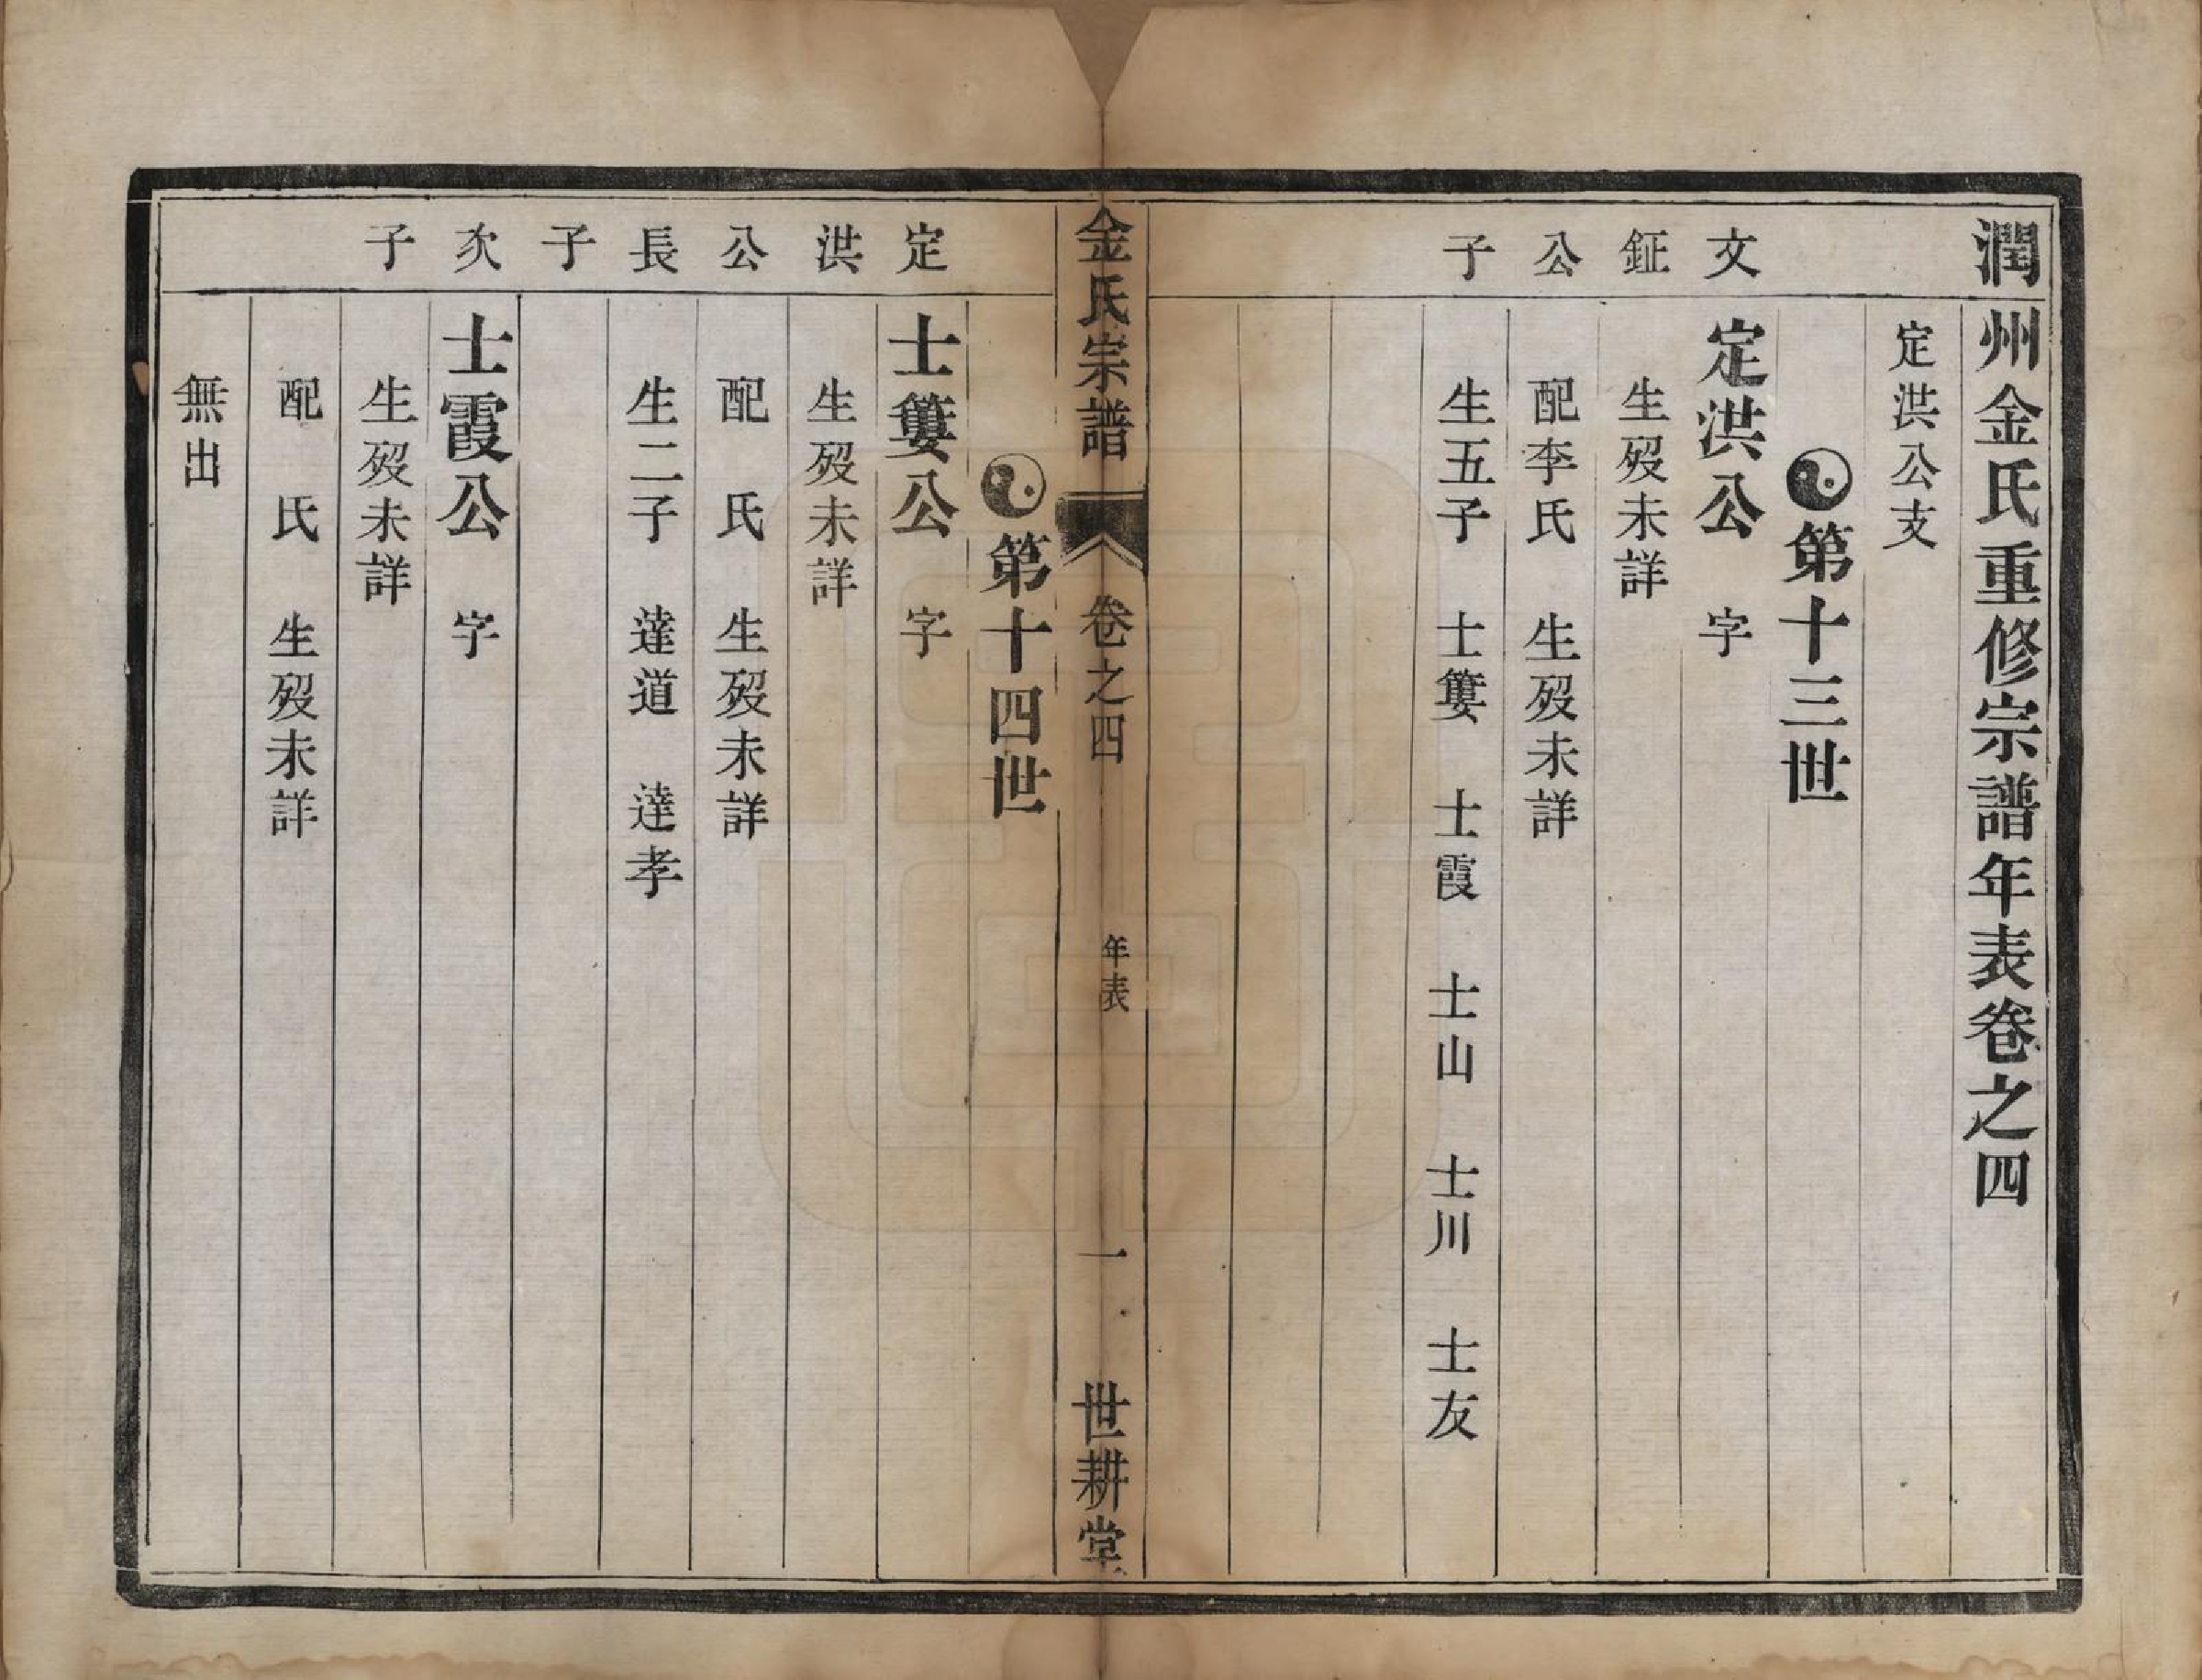 潤州金氏重修宗譜年表卷之四
定洪公支
第十三世
文鉦公子
定洪公　字
生歿未詳
配李氏　生歿未詳
生五子　士籆　士霞　士山　士川　士友
金氏宗譜　卷之四　年表　一　世耕堂
第十四世
定洪公長子
士籆公　字
生歿未詳
配　氏　生歿未詳
生二子　達道　達孝
次子
士霞公　字
生歿未詳
配　氏　生歿未詳
無出